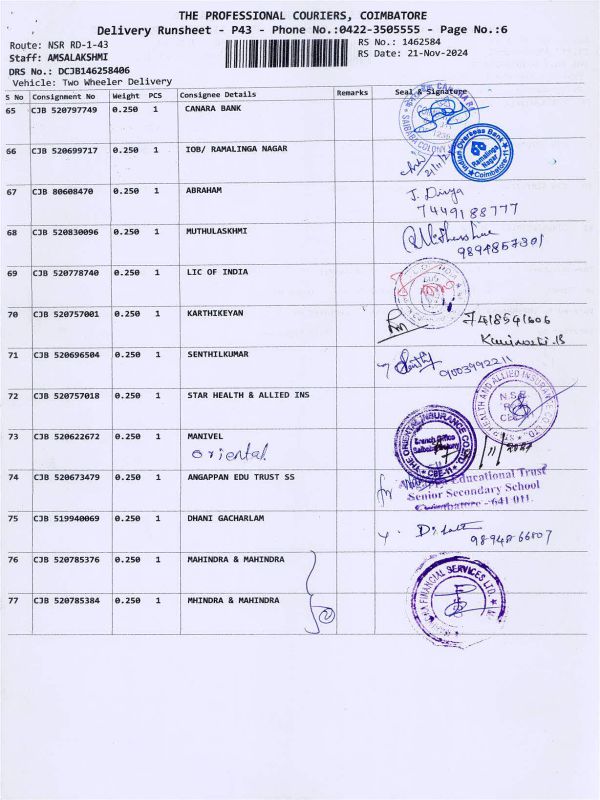 THE PROFESSIONAL COURIERS, COIMBATORE
Delivery Runsheet - P43 - Phone No.:0422-3505555 - Page No.:6
Route: NSR RD-1-43 RS No.: 1462584
Staff: AMSALAKSHMI RS Date: 21-Nov-2024
DRS No.: DCJB146258406
Vehicle: Two Wheeler Delivery
S No Consignment No Weight PCS Consignee Details Remarks Seal & Signature
65 CJB 520797749 0.250 1 CANARA BANK
66 CJB 520699717 0.250 1 IOB/ RAMALINGA NAGAR
Indian Overseas Bank
Ramalinga Nagar
Coimbatore-11
67 CJB 80608470 0.250 1 ABRAHAM J. Divya
7449188777
68 CJB 520830096 0.250 1 MUTHULASKHMI
9894857301
69 CJB 520778740 0.250 1 LIC OF INDIA
70 CJB 520757001 0.250 1 KARTHIKEYAN 7418541606
71 CJB 520696504 0.250 1 SENTHILKUMAR 9003992211
72 CJB 520757018 0.250 1 STAR HEALTH & ALLIED INS
STAR HEALTH AND ALLIED INSURANCE CO. LTD.
73 CJB 520622672 0.250 1 MANIVEL
oriental
THE ORIENTAL INSURANCE CO. LTD.
Branch Office
CBE-11
74 CJB 520673479 0.250 1 ANGAPPAN EDU TRUST SS for
Educational Trust
Senior Secondary School
Coimbatore - 641 011.
75 CJB 519940069 0.250 1 DHANI GACHARLAM
9894866807
76 CJB 520785376 0.250 1 MAHINDRA & MAHINDRA
77 CJB 520785384 0.250 1 MHINDRA & MAHINDRA 2
FINANCIAL SERVICES LTD.